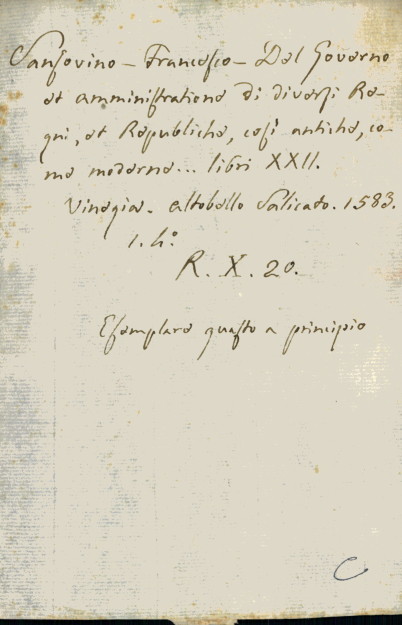 Sansovino - Francesco - Del Governo
et amministratione di diversi Re-
gni, et Republiche, così antiche, co-
me moderne... libri XXII.
Vinegia. Altobello Salicato. 1583.
1. 4°.
R. X. 20.
Esemplare guasto a principio
C